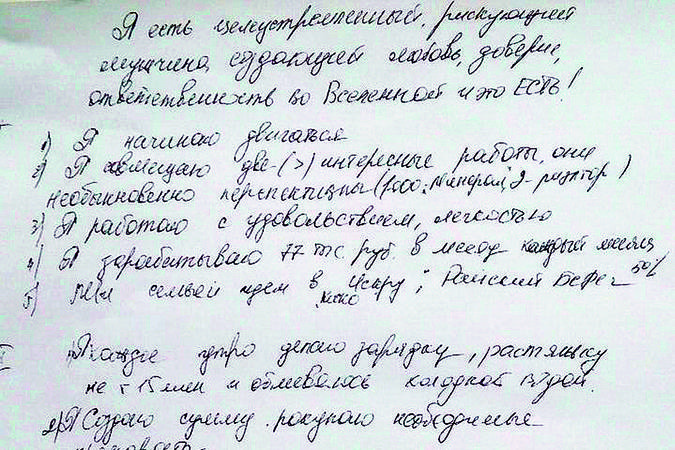 Я есть целеустремленный, рискующий
мужчина, создающий любовь, доверие,
ответственность во Вселенной и это ЕСТЬ!
1) Я начинаю двигаться
2) Я совмещаю две (>) интересные работы, они
необыкновенно перспективны (1000;
3) Я работаю с удовольствием, легкостью
4) Я зарабатываю 77 тыс. руб. в месяц каждый месяц
5) семьей идем в Искру; Райский Берег 50%
1) Каждое утро делаю зарядку, растяжку
не < 15 мин и обливаюсь холодной водой.
2) Я Создаю сумму. покупаю необходимые